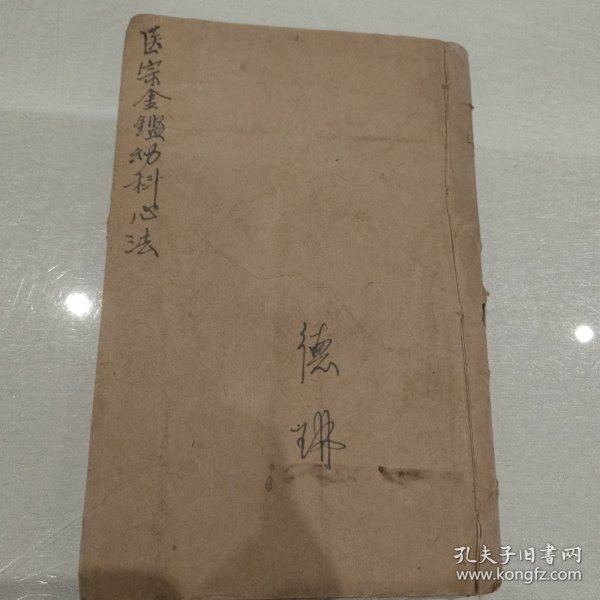 医宗金鑑幼科心法
德
孔夫子旧書网
www.kongfz.com